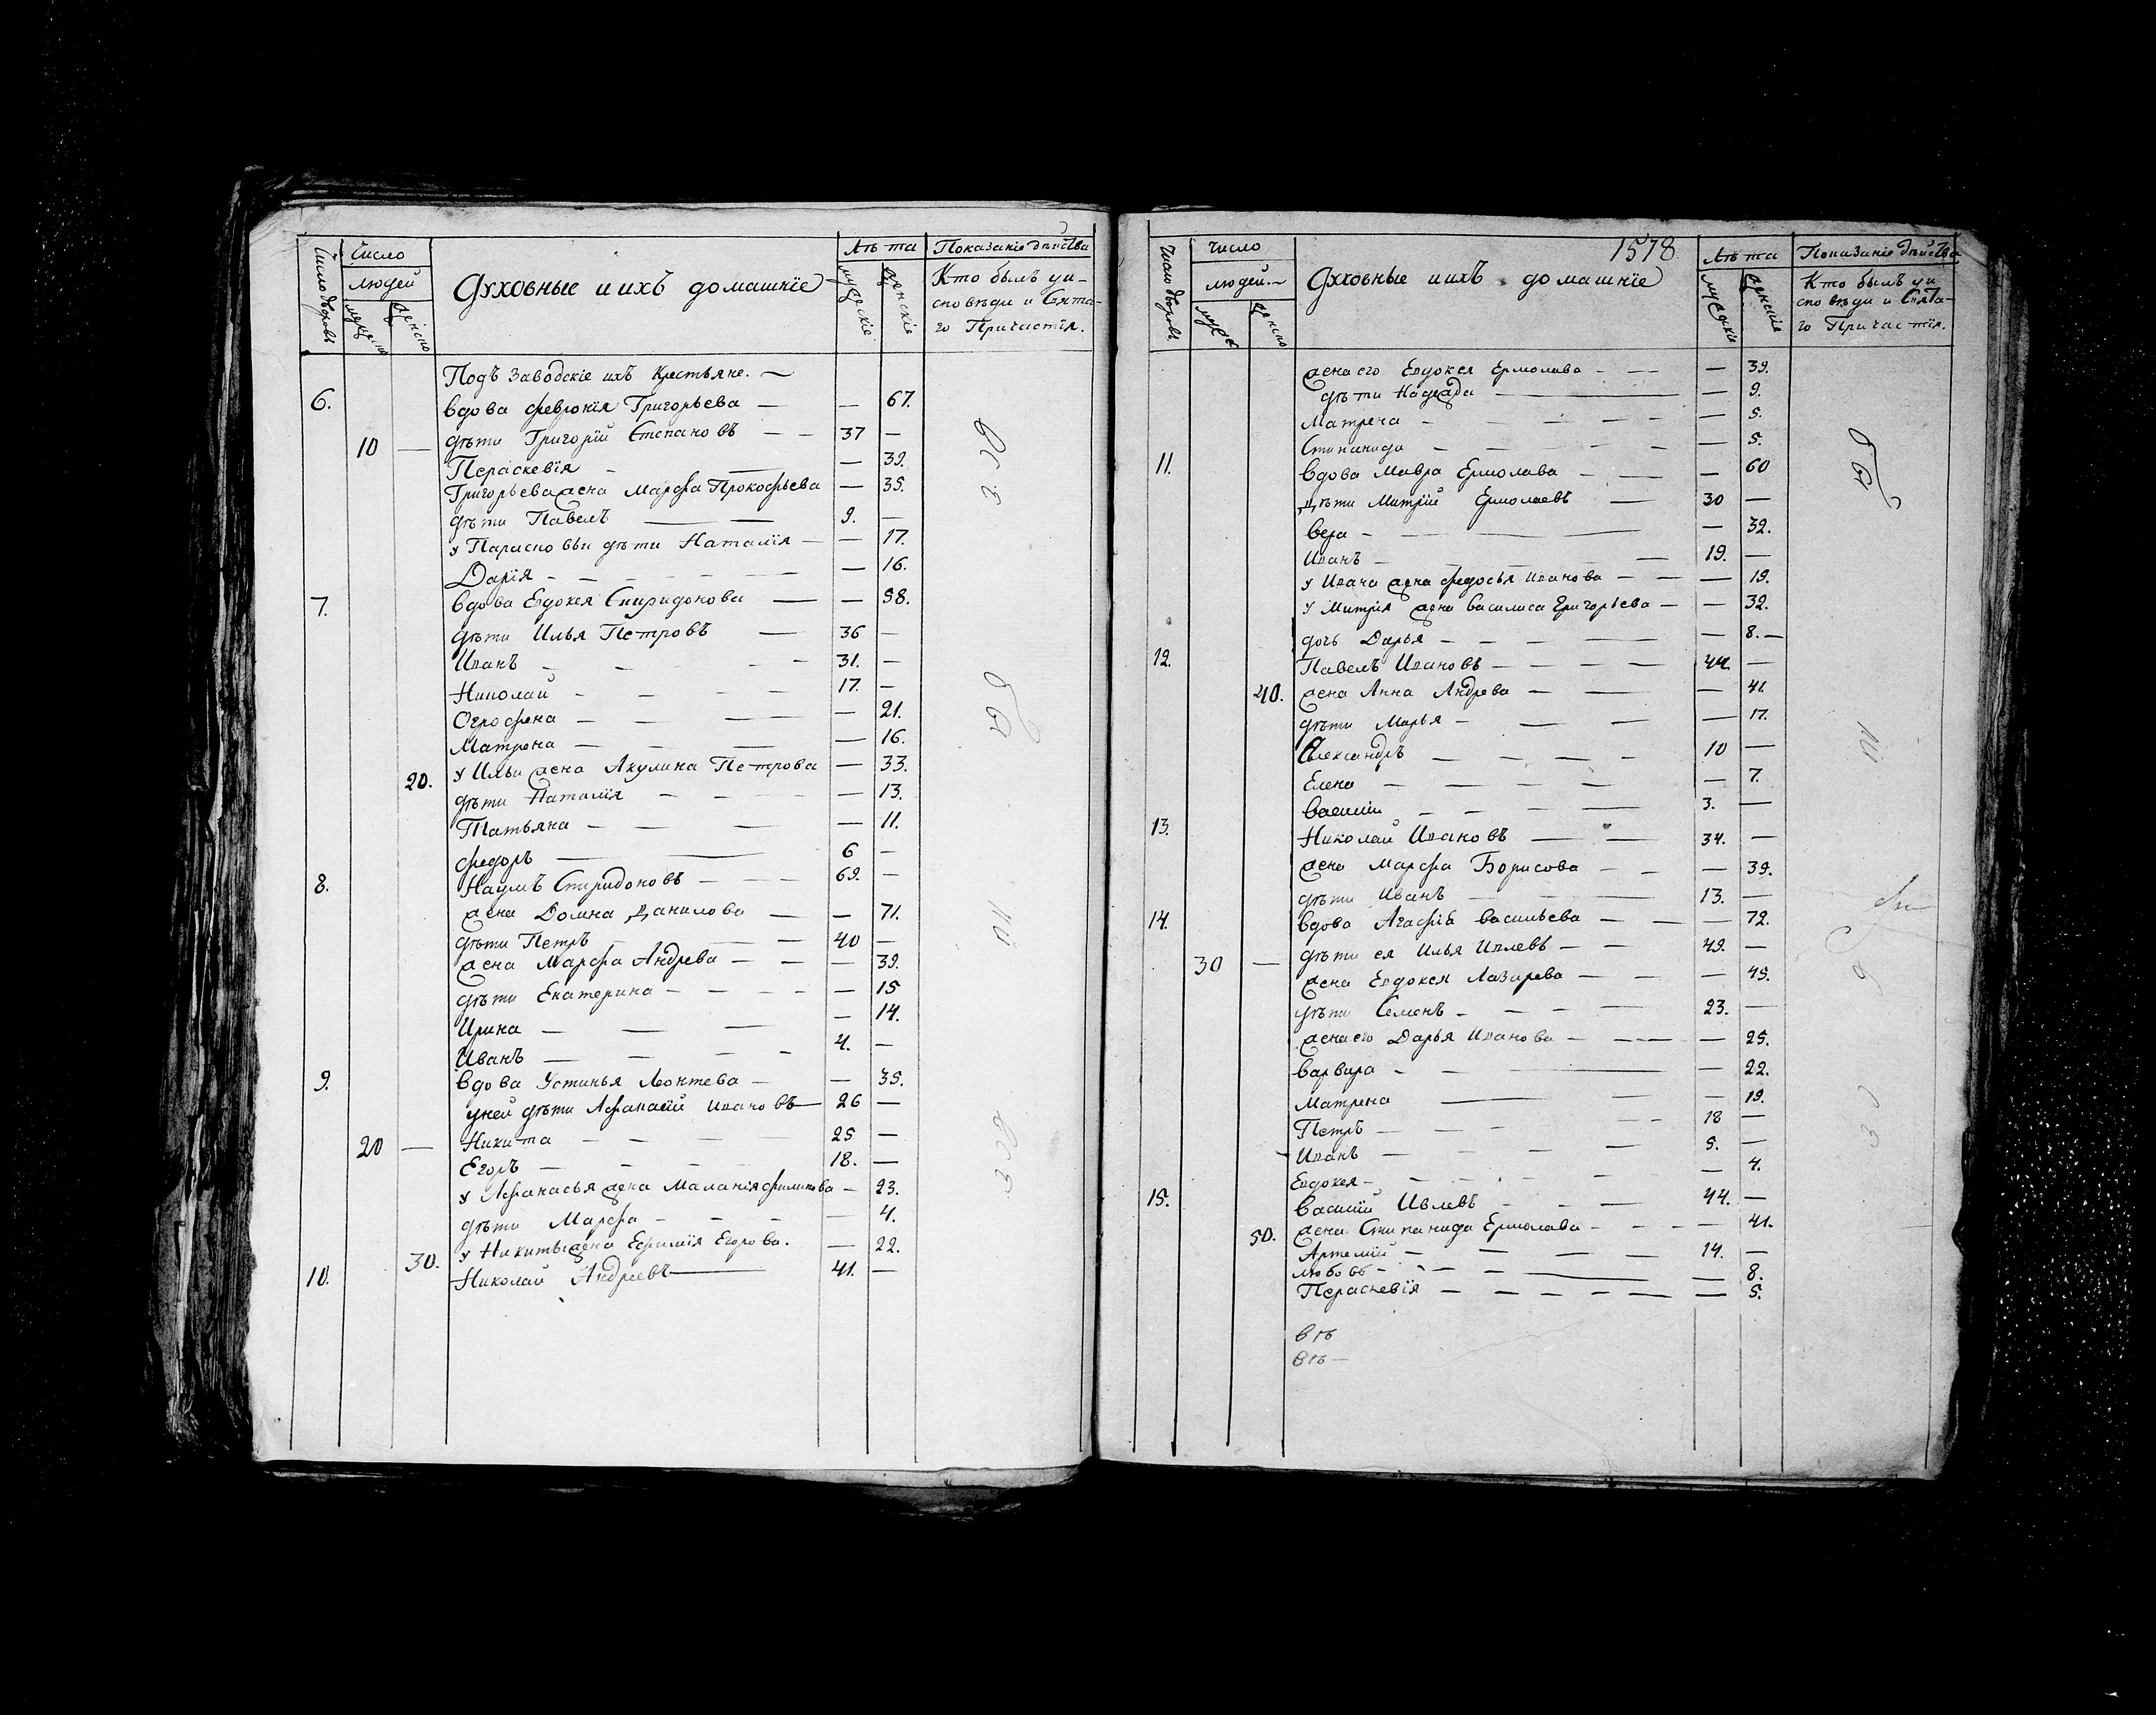 Число дворовъ
Число
людей
Духовные и ихъ домашніе
Лѣта
мужескіе
женскіе
Показаніе дѣйства
Кто былъ у и-
споведи и Свята-
го Причастія.
Подъ Заводскіе ихъ Крестьяне. —
6. вдова феврокія Григорьева — — 67.
10 — дѣти Григорій Степановъ — — 37 —
Пераскевія — — — 39.
Григорьева жена Марфа Прокофьева — 35.
дѣти Павелъ — — 9. —
у Парасковьи дѣти Наталія — — 17.
Дарія — — — — — 16.
7. вдова Евдокея Спиридонова — — 58.
дѣти Илья Петровъ — 36 —
Иванъ — — — — 31. —
Николай — — — — 17. —
Огрофена — — — — 21.
Матрена — — — — 16.
20. у Ильи жена Акулина Петрова — 33.
дѣти Наталія — — — — 13.
Татьяна — — — — 11.
федоръ — — 6 —
8. Наумъ Спиридоновъ — — — 69. —
жена Домна Данилова — — 71.
дѣти Петръ — — — 40 —
жена Марфа Андрева — — — 39.
дѣти Екатерина — — — — — 15
Ирина — — — — 14.
Иванъ — — — — 4. —
9. вдова Устинья Леонтева — — 35.
у ней дѣти Афанасій Ивановъ — 26 —
20 — Никита — — — — 25 —
Егоръ — — — — 18. —
у Афанасья жена Маланія филипова — 23.
дѣти Марфа — — — — 4.
у Никиты жена Ефимія Егорова. — 22.
30.
10. Николай Андреевъ — 41. —
1578.
Число дворовъ
Число
людей
Духовные и ихъ домашніе
Лѣта
мужескіе
женскіе
Показаніе дѣйства
Кто былъ у и
споведи и Свята-
го Причастія.
жена его Евдокея Ермолава — — — 39.
дѣти Надежда — — 9.
Матрена — — — — — 5.
Степанида — — — — — 5.
11. вдова Мавра Ермолава — — — 60
Дѣти Митрій Ермолаевъ — 30 —
Вера — — — — 32.
Иванъ — — — 19. —
у Ивана жена федосья Иванова — — — 19.
у Митрія жена Василиса Григорьева — — 32.
дочь Дарья — — — — — 8. —
12. Павелъ Ивановъ — — — — 44. —
40. жена Анна Андрева — — — 41.
дѣти Марья — — — — 17.
Александръ — — — — 10 —
Елена — — — — — 7.
Василій — — — — 3. —
13. Николай Ивановъ — — 34. —
жена Марфа Борисова — — — 39.
дѣти Иванъ — — — 13. —
14. вдова Агафія Васильева — — — 72.
30 — дѣти ея Илья Ивлевъ — — 49. —
жена Евдокея Лазарева — — — 45.
дѣти Семенъ — — — — 23. —
жена его Дарья Иванова — — — — 25.
Варвара — — — — 22.
Матрена — — — 19.
Петръ — — — — — 18 —
Иванъ — — — — 5. —
Евдокея — — — — — 4.
15. Василій Ивлевъ — — — 44. —
50. жена Степанида Ермолава — — — — 41.
Артемій — — — — 14. —
Любовь — — — — — 8.
Пераскевія — — — — — — 5.